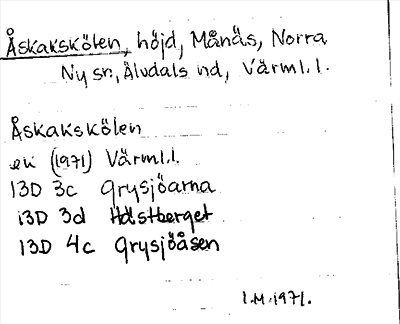 Åskakskölen, höjd, Månäs, Norra
Ny sn, Älvdals hd, Värml. l.
Åskakskölen
ek (1971) Värml. l.
13D 3c Grysjöarna
13D 3d Hästberget
13D 4c Grysjöåsen
I.M. 1971.